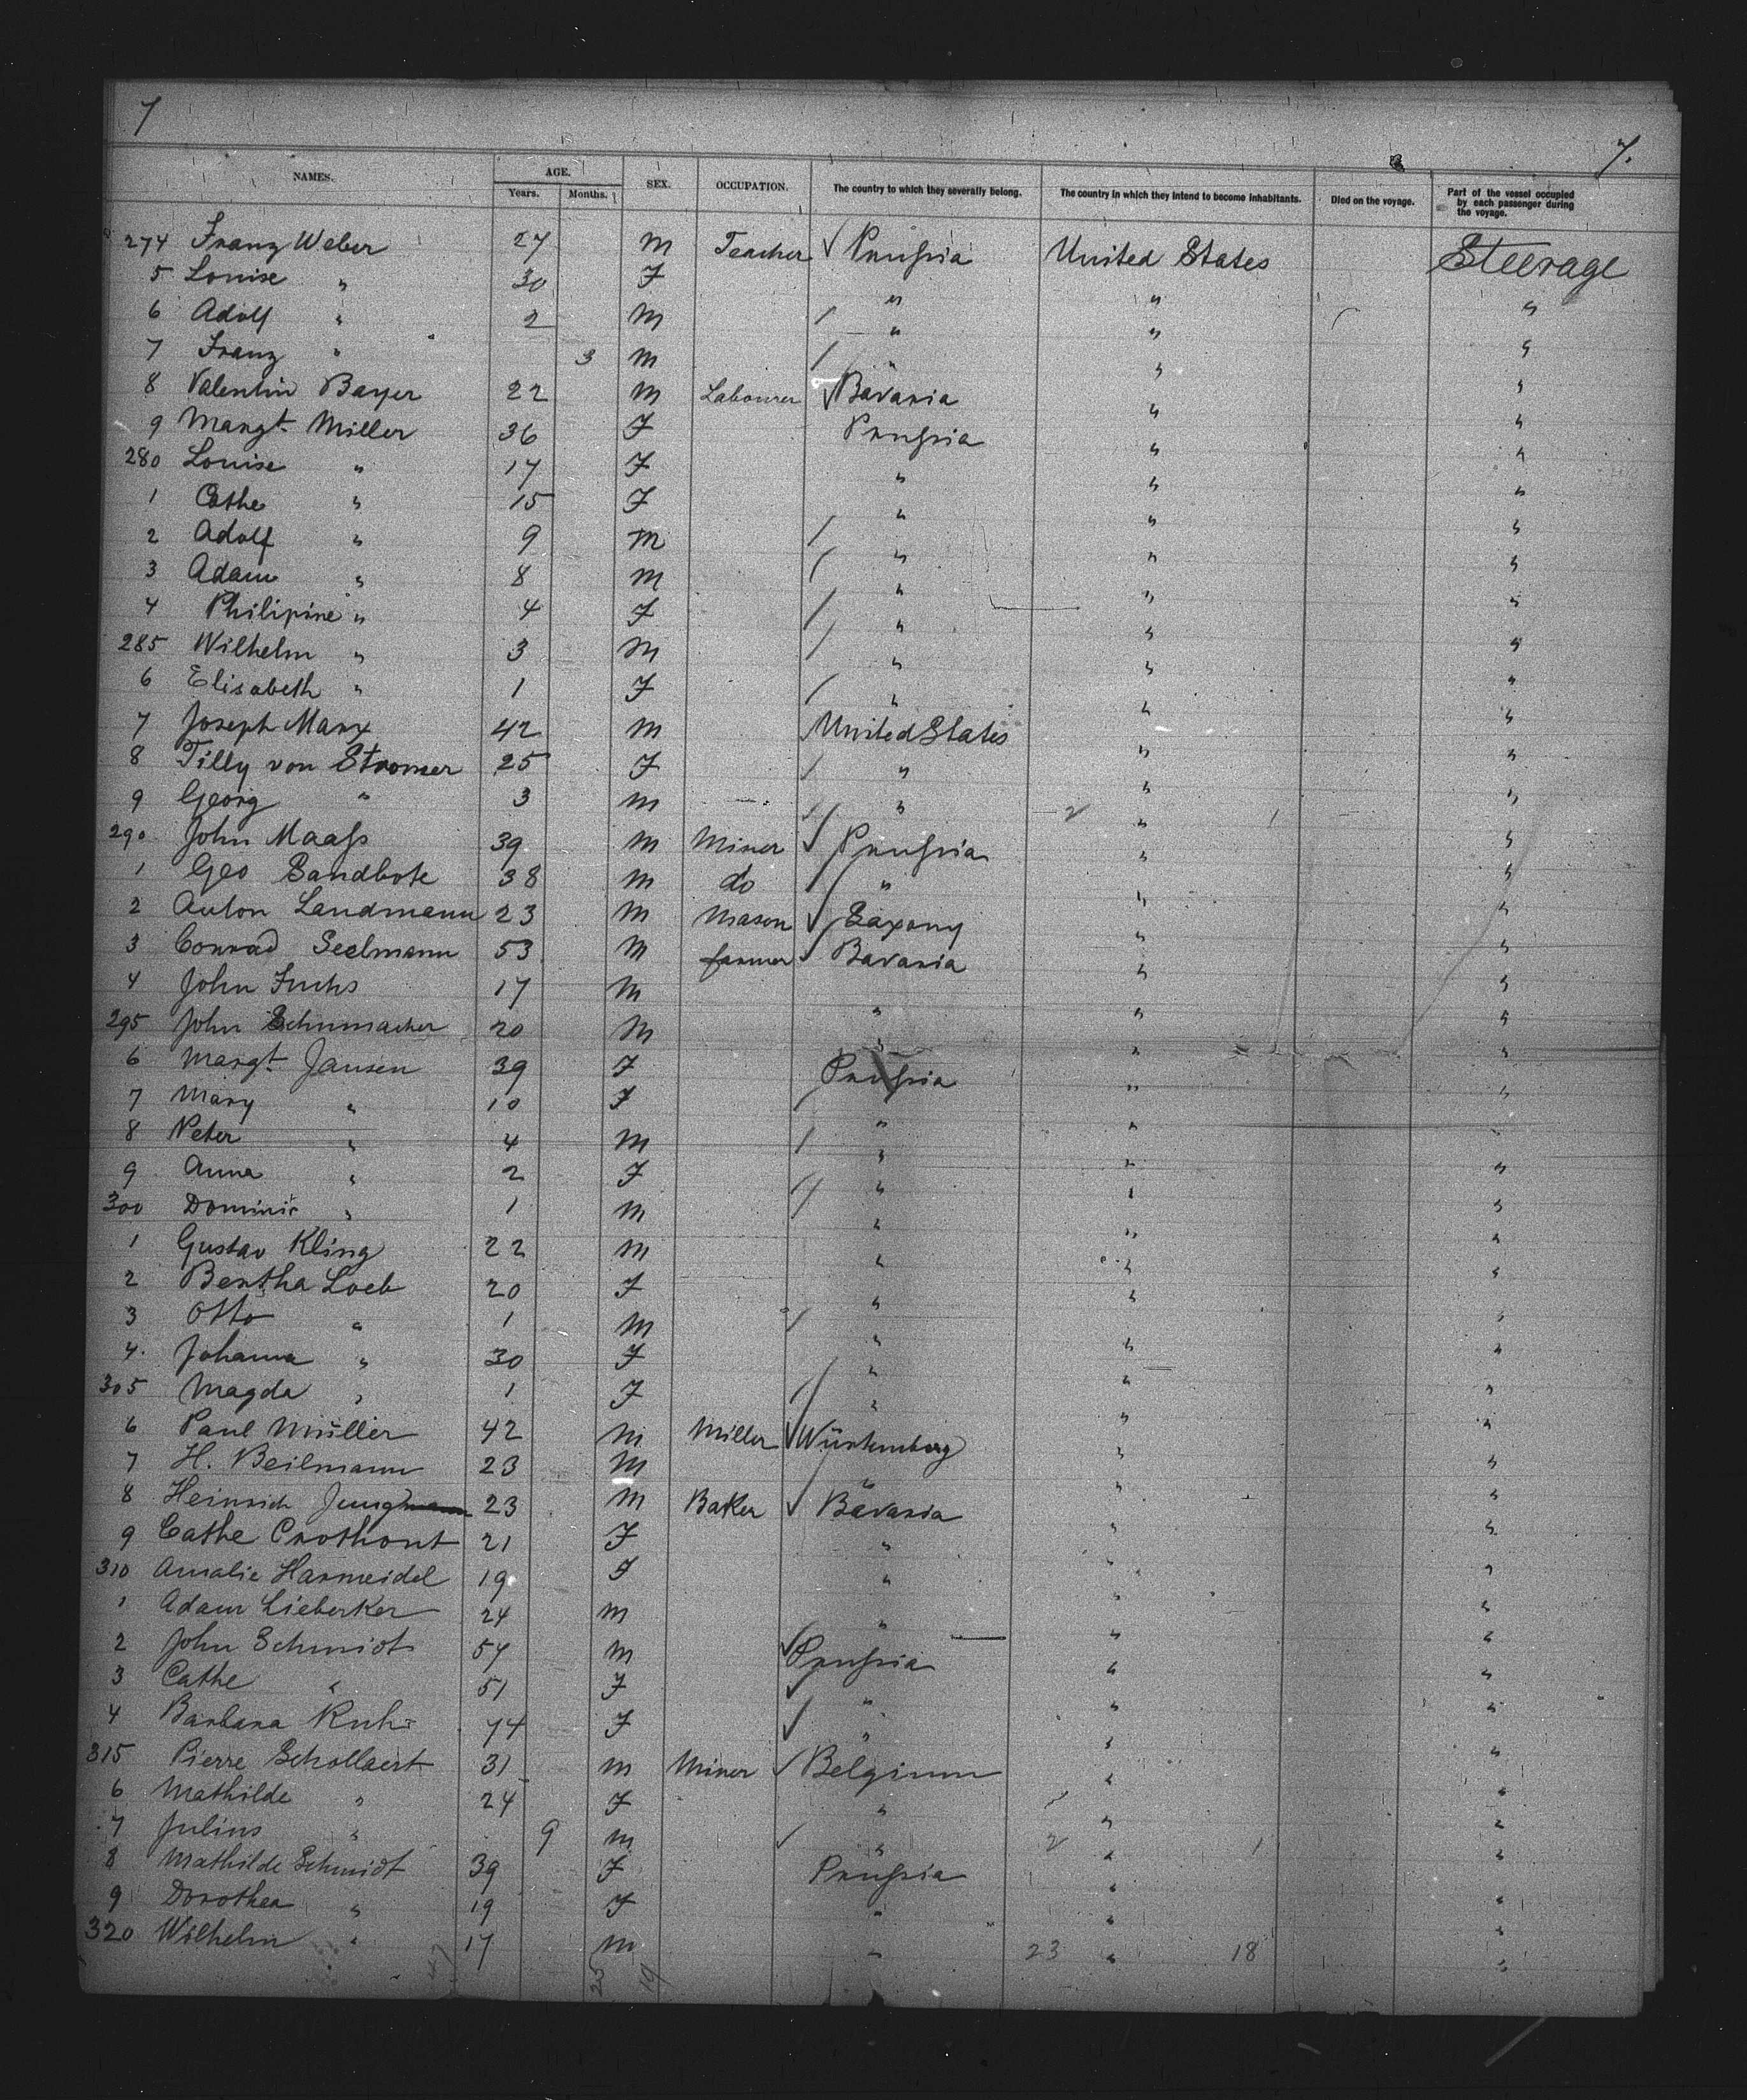 7
7.
NAMES. AGE. Years. Months. SEX. OCCUPATION. The country to which they severally belong. The country in which they intend to become inhabitants. Died on the voyage. Part of the vessel occupied by each passenger during the voyage.
274 Franz Weber 27 M Teacher Prussia United States Steerage
5 Louise " 30 F " " "
6 Adolf " 2 M " " "
7 Franz " 3 M " " "
8 Valentin Bayer 22 M Labourer Bavaria " "
9 Margt. Miller 36 F Prussia " "
280 Louise " 17 F " " "
1 Cathe " 15 F " " "
2 Adolf " 9 M " " "
3 Adam " 8 M " " "
4 Philipine " 4 F " " "
285 Wilhelm " 3 M " " "
6 Elisabeth " 1 F " " "
7 Joseph Marx 42 M United States " "
8 Tilly von Stromer 25 F " " "
9 Georg " 3 M " 2 " 1 "
290 John Maass 39 M Miner Prussia " "
1 Geo Sandbote 38 M do " " "
2 Anton Landmann 23 M Mason Saxony " "
3 Conrad Seelmann 53 M farmer Bavaria " "
4 John Fuchs 17 M " " "
295 John Schumacher 20 M " " "
6 Margt Jansen 39 F Prussia " "
7 Mary " 10 F " " "
8 Peter " 4 M " " "
9 Anna " 2 F " " "
300 Dominic " 1 M " " "
1 Gustav Kling 22 M " " "
2 Bertha Loeb 20 F " " "
3 Otto " 1 M " " "
4. Johanna " 30 F " " "
305 Magda " 1 F " " "
6 Paul Müller 42 M Miller Würtemberg " "
7 H. Beilmann 23 M " " "
8 Heinrich Jungmann 23 M Baker Bavaria " "
9 Cathe Crothont 21 F " " "
310 Amalie Harmeidel 19 F " " "
1 Adam Lieberker 24 M " " "
2 John Schmidt 57 M Prussia " "
3 Cathe " 51 F " " "
4 Barbara 74 F " " "
315 Pierre Schollaert 31 M Miner Belgium " "
6 Mathilde " 24 F " " "
7 Julius " 9 M " 2 " 1 "
8 Mathilde Schmidt 39 F Prussia " "
9 Dorothea " 19 F " " "
320 Wilhelm " 17 M " 23 " 18 "
25 19